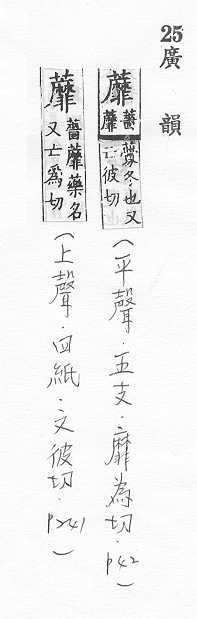 25廣韻
蘼 蘠蘼虋冬也又亡彼切
(平聲.五支.靡為切.p42)
蘼 薔蘼藥名又亡為切
(上聲.四紙.文彼切.p241)